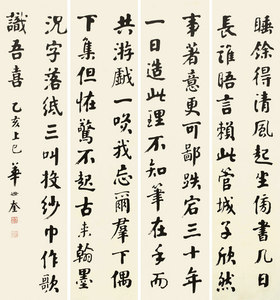 睡餘得清坐書几日
長誰晤言賴此管城子欣然
事著意更可鄙跌宕三十年
一日造此理不知筆在手而
共游戲一我忘爾群下偶
下集但怪驚不起古来翰墨
況字落紙三叫投紗巾作歌
識吾喜 乙亥上巳 華世奎